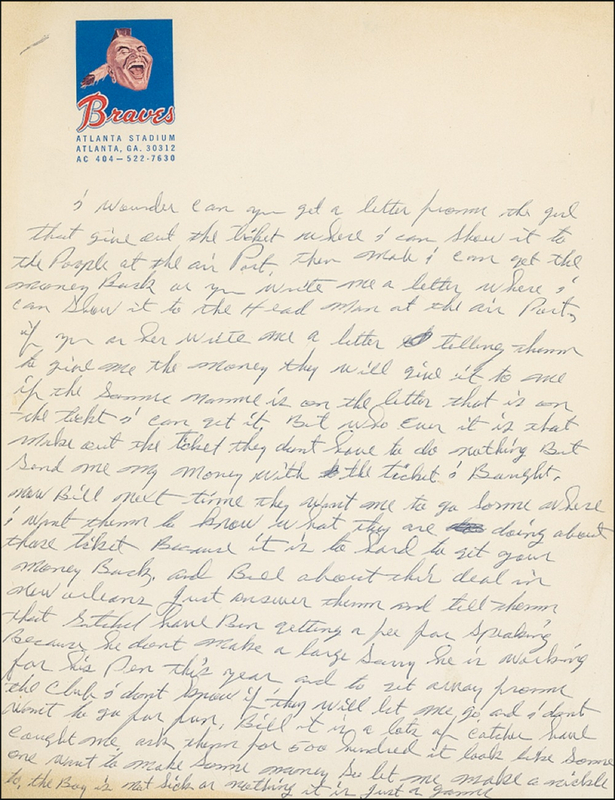 Braves
ATLANTA STADIUM
ATLANTA, GA. 30312
AC 404-522-7630
I wounder can you get a letter fromm the girl
that give out the ticket where I can show it to
the People at the air Port, then I can get the
money Back or you write me a letter where I
can show it to the Head man at the air Port,
if you or her write me a letter telling themm
to give me the money they will give it to me
if the Samme namme is on the letter that is on
the ticket I can get it, But who Ever it is that
make out the ticket they dont have to do nothing But
Send me my money with the ticket I Baught.
now Bill next time they want me to go Somme where
I want themm to know what they are doing about
those ticket Because it is to hard to get your
money Back, and Bill about this deal in
new orleans Just answer themm and tell themm
that Satchel have Ben getting a fee for Speaking
Because he dont make a large he is working
for his Pen this year and to git away fromm
the Club I dont know if they will let me go, and I dont
want to go for fun, Bill it is a lots of catcher have
caught me ask themm for 500 hundred it look like Somme
one want to make Somme money So let me make a nickle
to, the Boy is not Sick or nothing it is Just a game